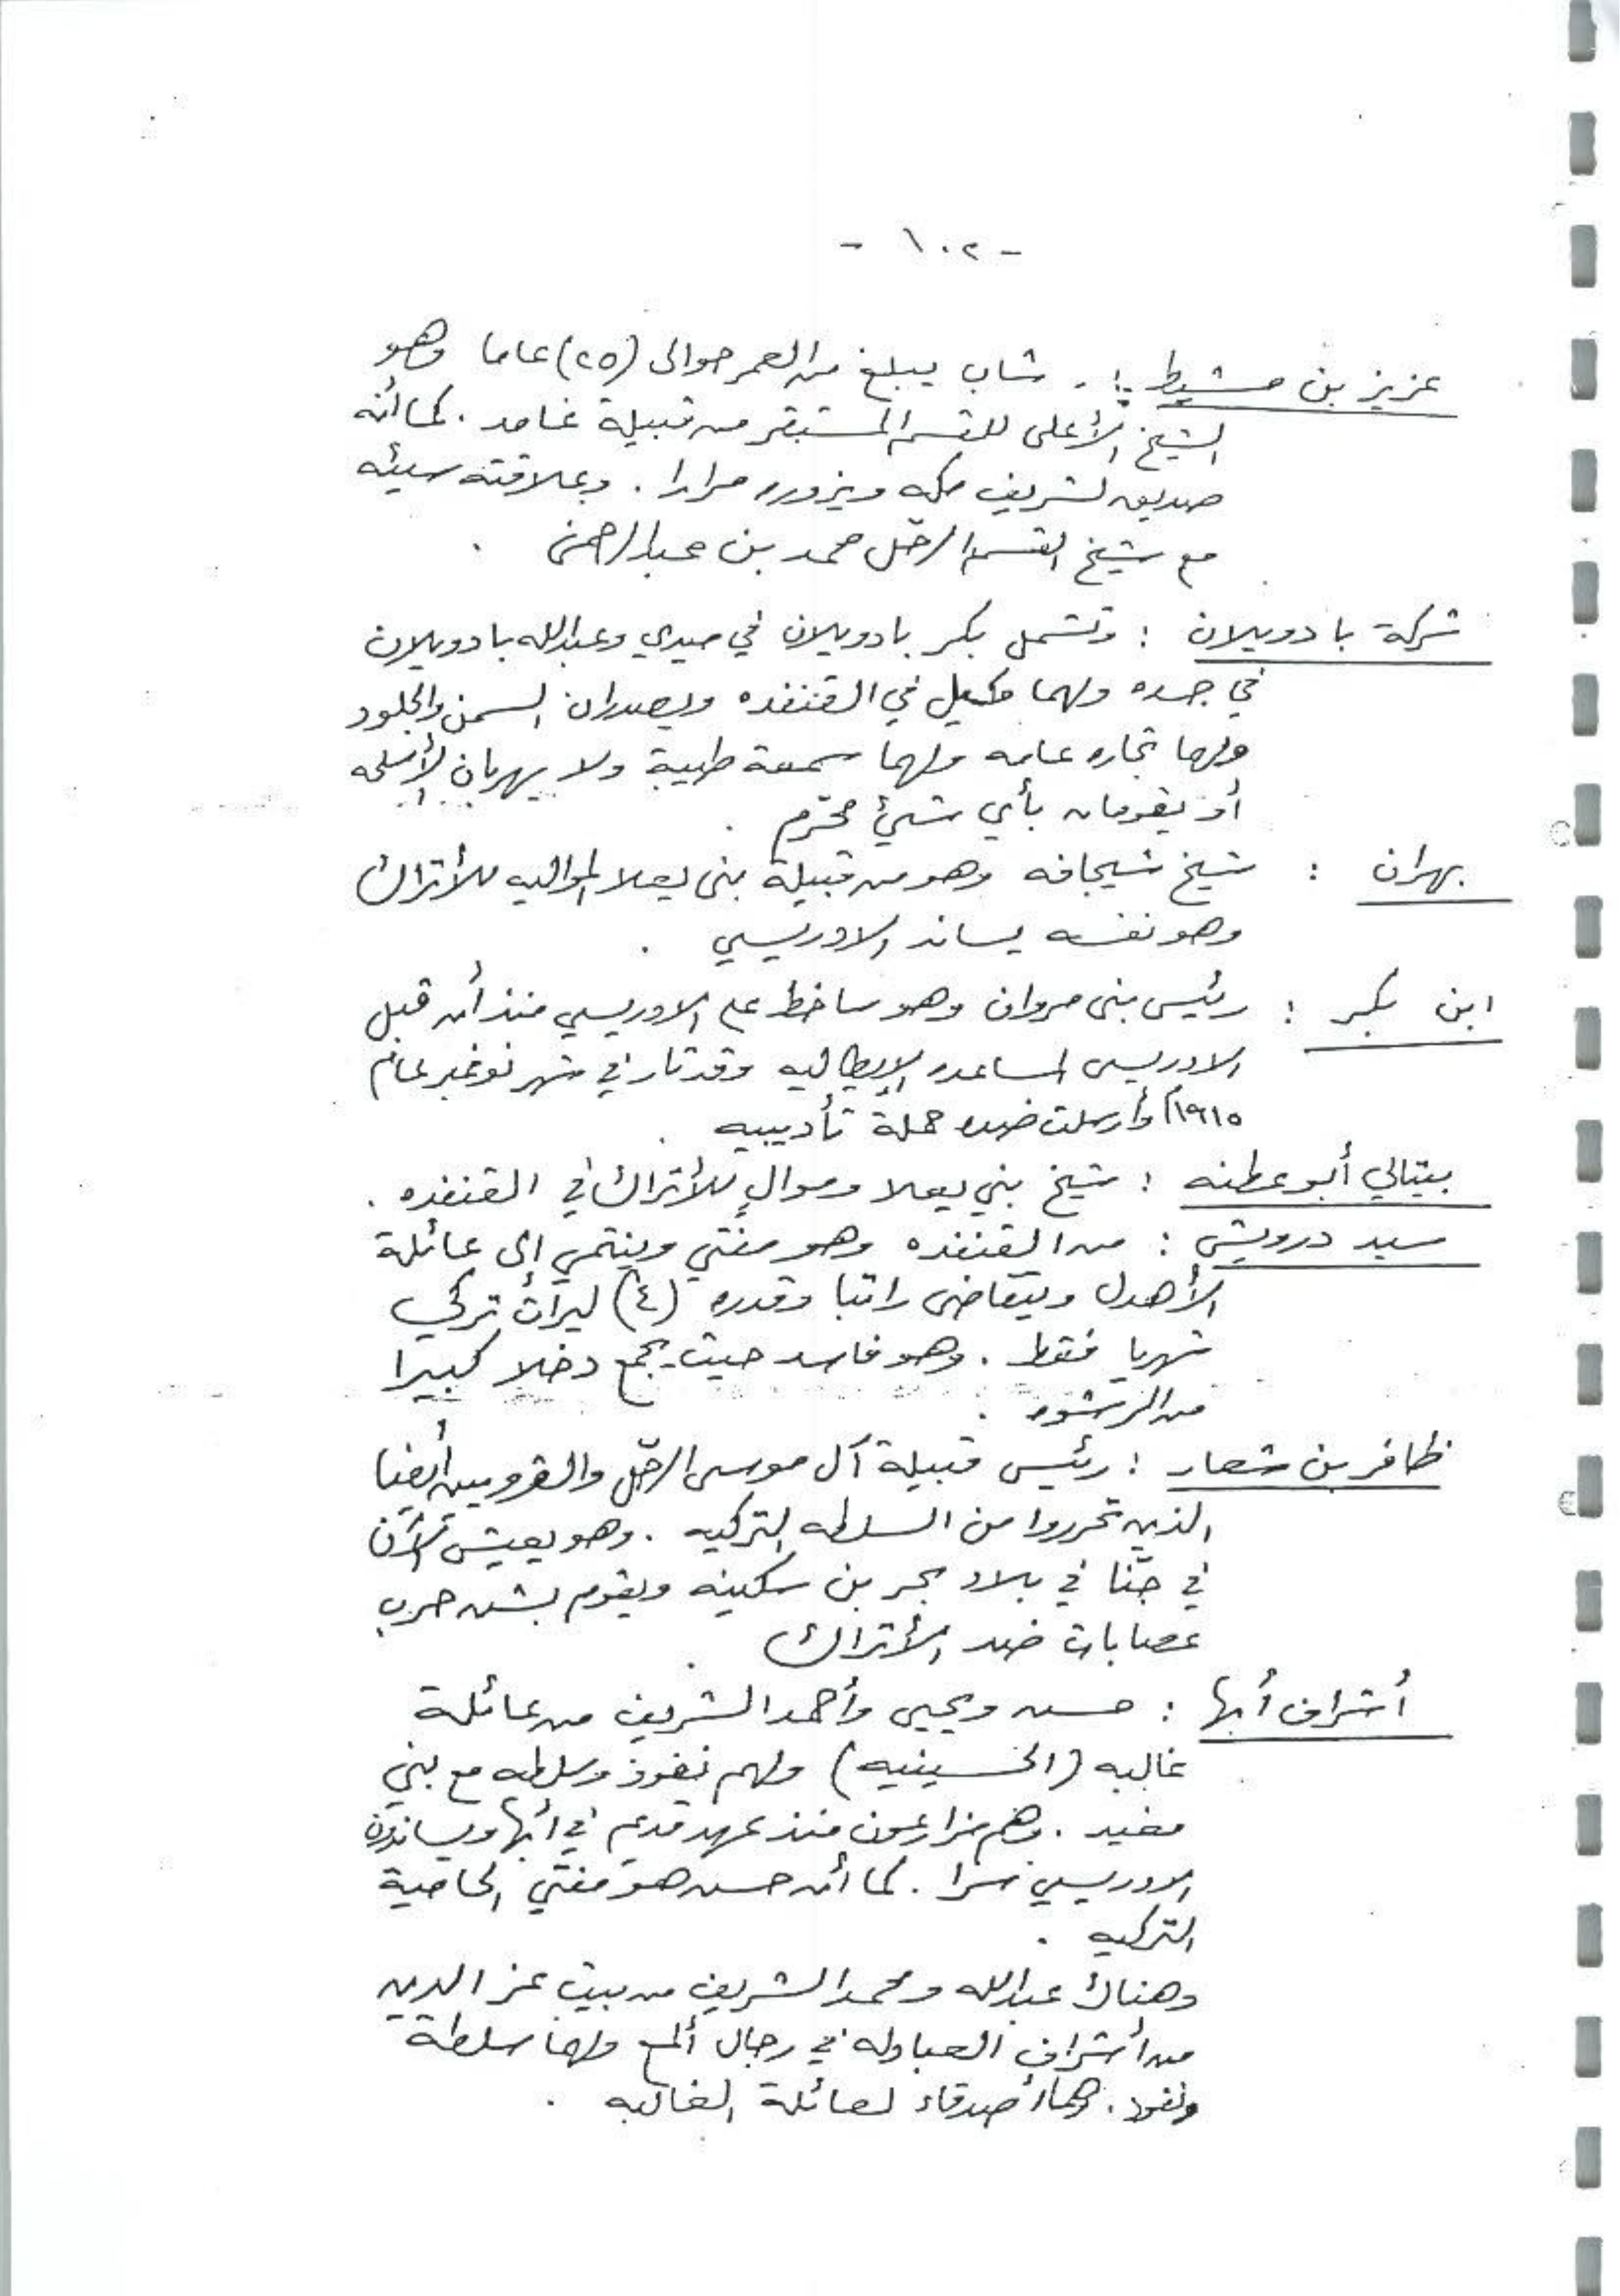 - ١٠٢ -
عزيز بن مشيط : . شاب يبلغ من العمر حوالى (٢٥) عاما وهو
الشيخ الأعلى للقسم المستقر من قبيلة غامد . كما أنه
صديق لشريف مكه ويزوره مرارا . وعلاقته سيئه
مع شيخ القسم الرحّل محمد بن عبدالرحمن .
شركة با دويلان : وتشمل بكر بادويلان في ميدي وعبدالله بادويلان
في جده ولهما وكيل في القنفذه ويصدران السمن والجلود
ولهما تجاره عامه ولهما سمعة طيبة ولا يهربان الأسلحه
أو يقومان بأي شيئ محرّم .
بهران : شيخ شيجافه وهو من قبيلة بنى يعلا المواليه للأتراك
وهو نفسه يساند الادريسي .
ابن بكر : رئيس بنى مروان وهو ساخط على الادريسي منذ أن قبل
الادريسى المساعده الإيطاليه وقد ثار في شهر نوفمبر عام
١٩١٥م وأرسلت ضده حملة تأديبيه .
بيتالي أبو عطنه : شيخ بني يعلا وموالٍ للأتراك في القنفذه .
سيد درويش : من القنفذه وهو مفتي وينتمي إلى عائلة
الأهدل ويتقاضى راتبا وقدره (٤) ليرات تركي
شهريا فقط . وهو فاسد حيث يجمع دخلا كبيرا
من الرشوه .
ظافر بن شعار : رئيس قبيلة آل موسى الرحّل والقرويين أيضا
الذين تحرروا من السلطه التركيه . وهو يعيش الآن
في حنّا في بلاد بحر بن سكينه ويقوم بشن حرب
عصابات ضد الأتراك .
أشراف أبها : حسن ويحيى وأحمد الشريف من عائلة
غالبه (الحسينيه) ولهم نفوذ وسلطه مع بني
مغيد . وهم مزارعون منذ عهد قديم في أبها ويساندون
الادريسي سرا . كما أن حسن هو مفتي الحامية
التركيه .
وهناك عبدالله ومحمد الشريف من بيت عز الدين
من أشراف العباوله في رجال ألمع ولهما سلطة
ونفوذ . وهما أصدقاء لعائلة الغالبه .